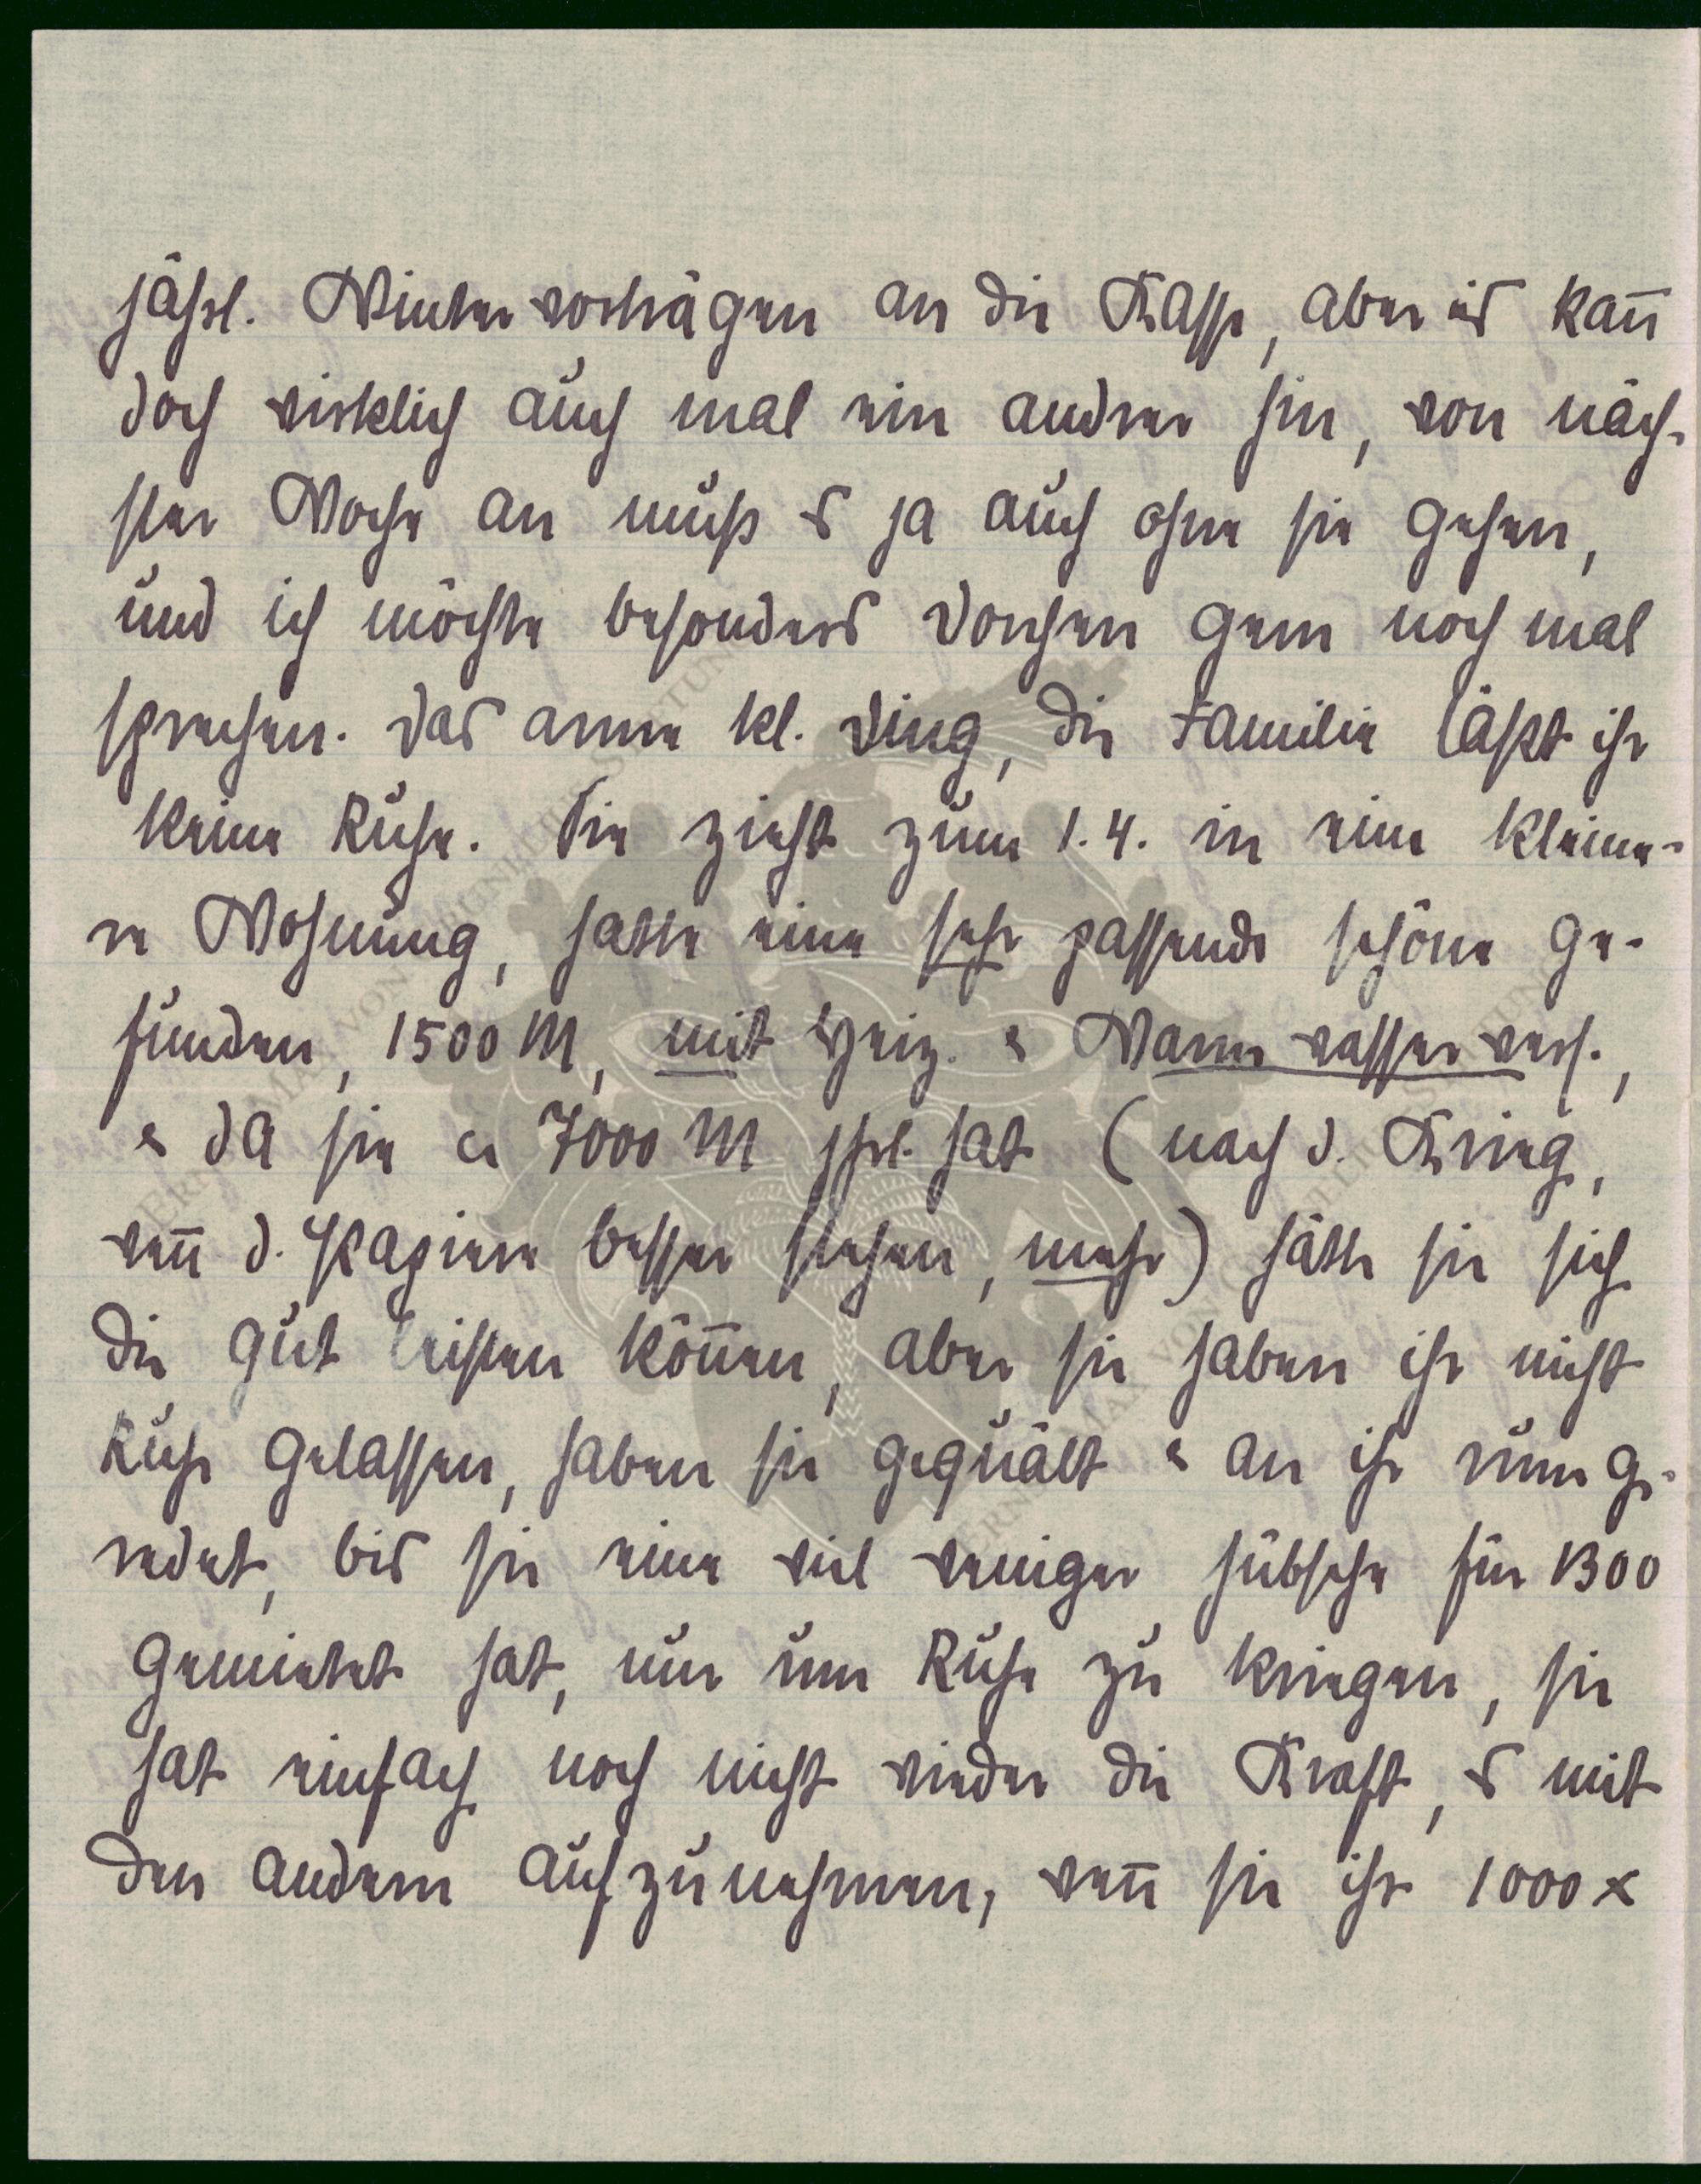 jährl. Wintervorträgen an die Kasse, aber es kañ
doch wirklich auch mal ein andrer hin, von näch-
ster Woche an muß es ja auch ohne sie gehen,
und ich möchte besonders Dorchen gern noch mal
sprechen. Das arme kl. Ding, die Familie läßt ihr
keine Ruhe. Sie zieht zum 1.4. in eine kleine-
re Wohnung, hatte eine sehr passende schöne ge-
funden, 1500 M, mit Heiz. & Warmwasservers.,
& da sie ca 7000 M jhrl. hat (nach d. Krieg,
weñ d. Papiere besser stehen, mehr) hätte sie sich
die gut leisten köñen, aber sie haben ihr nicht
Ruhe gelassen, haben sie gequält & an ihr rumge-
redet, bis sie eine viel weniger hübsche für 1300
gemietet hat, nur um Ruhe zu kriegen, sie
hat einfach noch nicht wieder die Kraft, es mit
den andern aufzunehmen, weñ sie ihr 1000 x